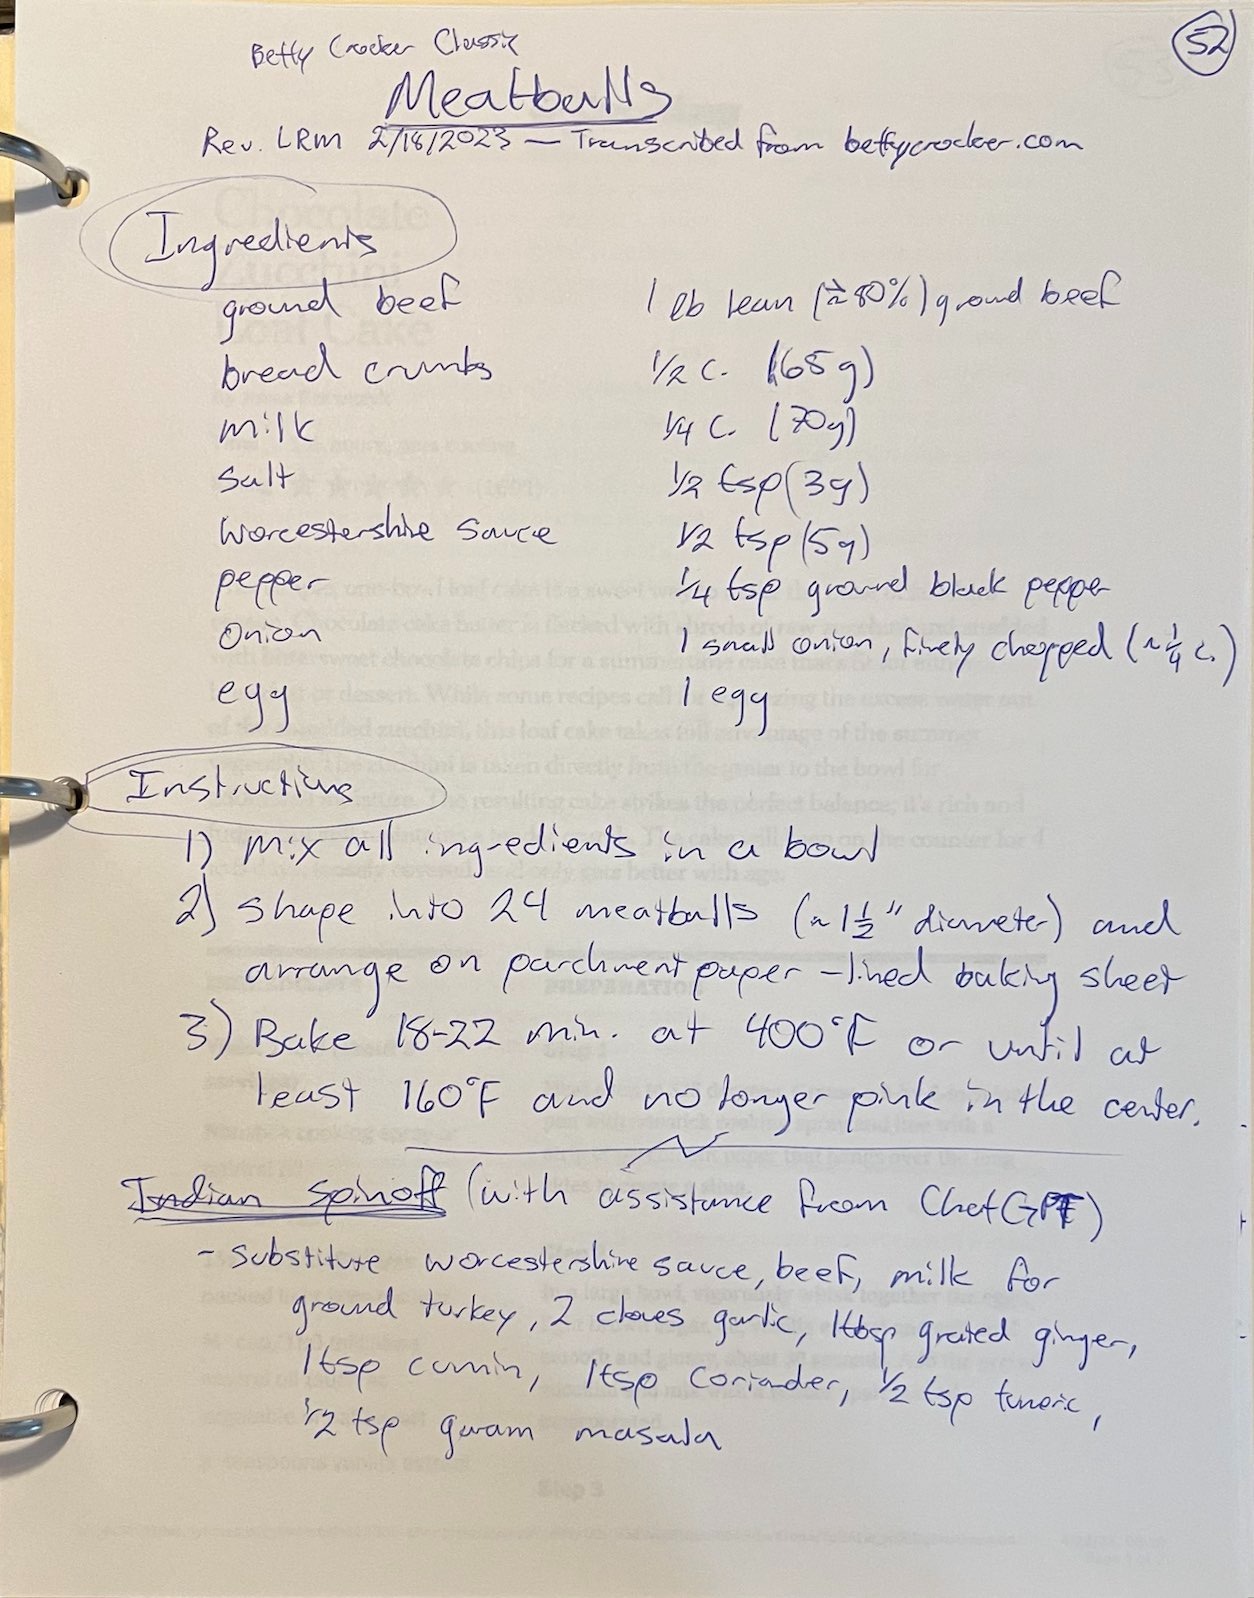 52
Betty Crocker Classic
Meatballs
Rev. LRM 2/18/2023 — Transcribed from bettycrocker.com
Ingredients
ground beef 1 lb lean (≥80%) ground beef
bread crumbs 1/2 c. (65g)
milk 1/4 c. (70g)
salt 1/2 tsp (3g)
Worcestershire sauce 1/2 tsp (5g)
pepper 1/4 tsp ground black pepper
onion 1 small onion, finely chopped (~1/4 c.)
egg 1 egg
Instructions
1) Mix all ingredients in a bowl
2) Shape into 24 meatballs (~1 1/2" diameter) and
arrange on parchment paper-lined baking sheet
3) Bake 18-22 min. at 400°F or until at
least 160°F and no longer pink in the center.
Indian spinoff (with assistance from ChatGPT)
- Substitute worcestershire sauce, beef, milk for
ground turkey, 2 cloves garlic, 1tbsp grated ginger,
1tsp cumin, 1tsp coriander, 1/2 tsp tumeric,
1/2 tsp garam masala
Chocolate
Zucchini
Loaf Cake
PREPARATION
Step 3